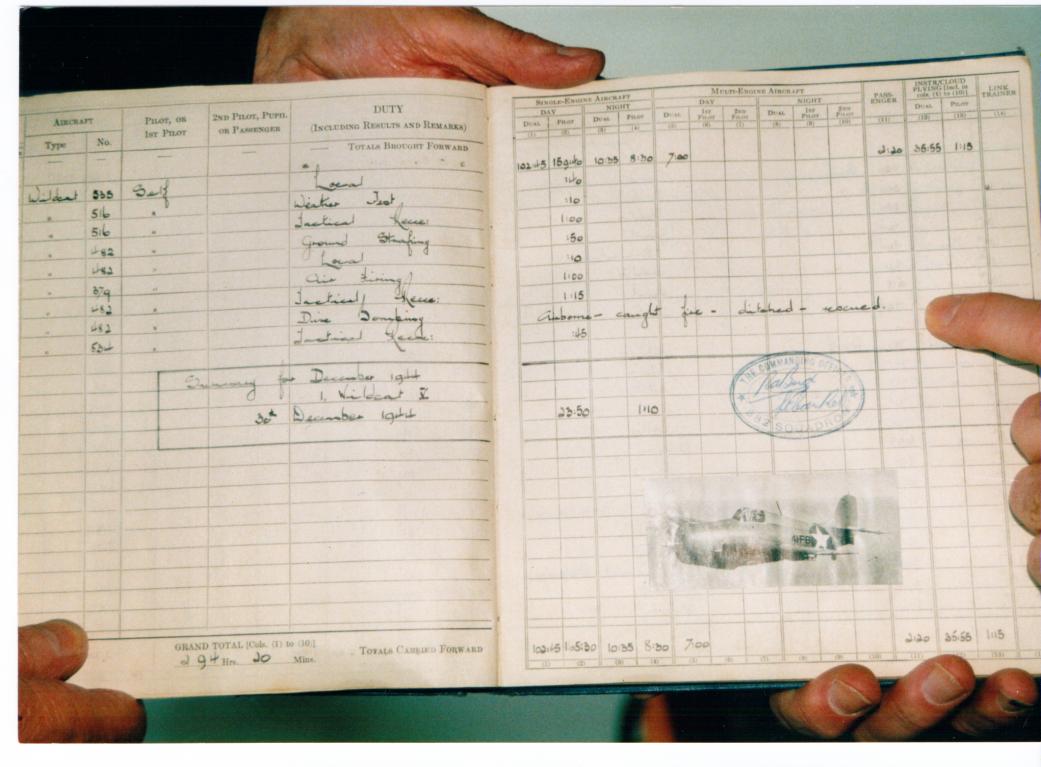 AIRCRAFT
Type No.
PILOT, OR
1ST PILOT
2ND PILOT, PUPIL
OR PASSENGER
DUTY
(INCLUDING RESULTS AND REMARKS)
— — — — TOTALS BROUGHT FORWARD
Wildcat 535 Self Local
" 516 " Weather Test
" 516 " Tactical Recce:
" 482 " Ground Strafing
" 482 " Local
" 379 " Air Firing
" 482 " Tactical Recce:
" 482 " Dive Bombing
" 534 " Tactical Recce:
Summary for December 1944
1. Wildcat V
30th December 1944
GRAND TOTAL [Cols. (1) to (10)]
294 Hrs. 20 Mins.
TOTALS CARRIED FORWARD
SINGLE-ENGINE AIRCRAFT
DAY NIGHT
DUAL PILOT DUAL PILOT
(1) (2) (3) (4)
MULTI-ENGINE AIRCRAFT
DAY NIGHT
DUAL 1ST PILOT 2ND PILOT DUAL 1ST PILOT 2ND PILOT
(5) (6) (7) (8) (9) (10)
PASS-
ENGER
(11)
INSTR/CLOUD
FLYING [Incl. in
cols. (1) to (10)]
DUAL PILOT
(12) (13)
LINK
TRAINER
(14)
102:45 10:35 8:30 7:00 2:20 35:55 1:15
:40
:10
1:00
:50
:10
1:00
1:15
Airborne - caught fire - ditched - rescued.
:45
23:50 1:10
THE COMMANDING OFFICER
882 SQUADRON
102:45 10:35 8:30 7:00 2:20 35:55 1:15
(1) (2) (3) (4) (5) (6) (7) (8) (9) (10) (11) (12) (13)